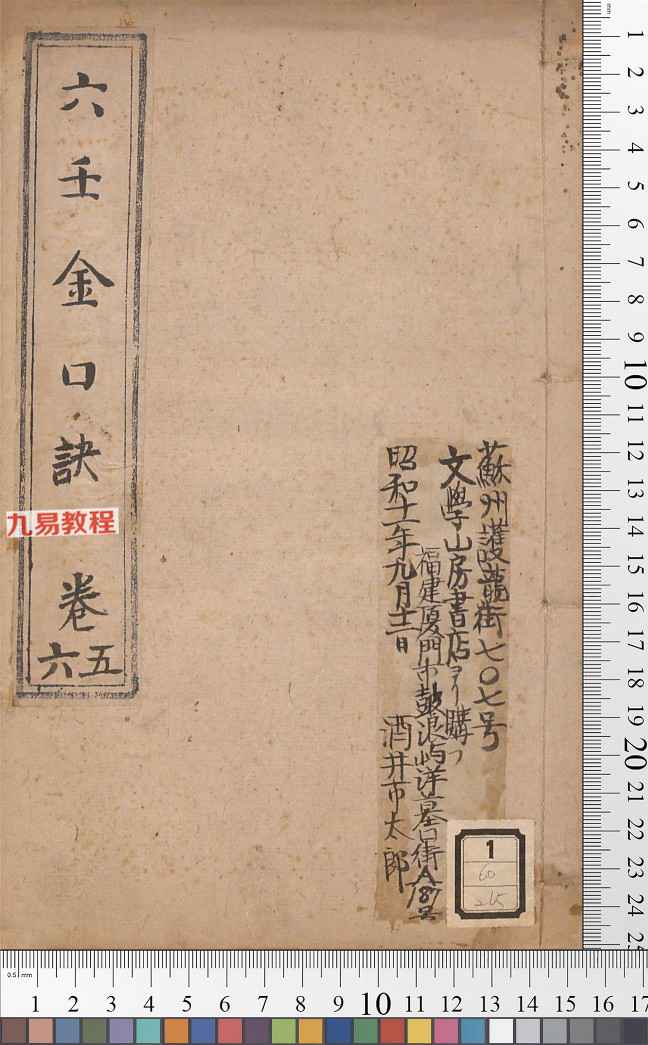 蘇州護龍街七〇七号
文學山房書店ヨリ購フ
福建厦門市鼓浪嶼洋墓口街A187号
昭和十一年九月十一日 酒井市太郎
六壬金口訣 卷
五
六
九易教程
1
60
265
0.5 mm
1 2 3 4 5 6 7 8 9 10 11 12 13 14 15 16 17
mm
1 2 3 4 5 6 7 8 9 10 11 12 13 14 15 16 17 18 19 20 21 22 23 24 25